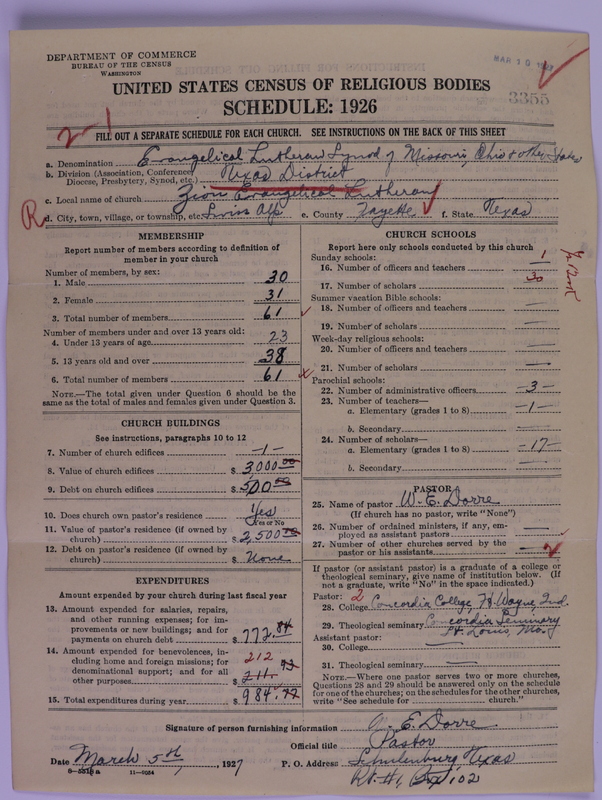 DEPARTMENT OF COMMERCE
BUREAU OF THE CENSUS
WASHINGTON
MAR 10 1927
3355
UNITED STATES CENSUS OF RELIGIOUS BODIES
SCHEDULE: 1926
2-1
FILL OUT A SEPARATE SCHEDULE FOR EACH CHURCH. SEE INSTRUCTIONS ON THE BACK OF THIS SHEET
a. Denomination Evangelical Lutheran Synod of Missouri, Ohio & other States
b. Division (Association, Conference, Diocese, Presbytery, Synod, etc.) Texas District
c. Local name of church Zion Evangelical Lutheran
R
d. City, town, village, or township, etc. Swiss Alp e. County Fayette f. State Texas
MEMBERSHIP
Report number of members according to definition of
member in your church
Number of members, by sex:
1. Male 30
2. Female 31
3. Total number of members 61
Number of members under and over 13 years old:
4. Under 13 years of age 23
5. 13 years old and over 38
6. Total number of members 61
NOTE.—The total given under Question 6 should be the
same as the total of males and females given under Question 3.
CHURCH BUILDINGS
See instructions, paragraphs 10 to 12
7. Number of church edifices -1-
8. Value of church edifices $ 3,000.00
9. Debt on church edifices $ 500.00
10. Does church own pastor's residence Yes
Yes or No
11. Value of pastor's residence (if owned by
church) $ 2,500.00
12. Debt on pastor's residence (if owned by
church) $ None
EXPENDITURES
Amount expended by your church during last fiscal year
13. Amount expended for salaries, repairs,
and other running expenses; for im-
provements or new buildings; and for
payments on church debt $ 772.84
14. Amount expended for benevolences, in-
cluding home and foreign missions; for
denominational support; and for all
212
other purposes $ 211.93
15. Total expenditures during year $ 984.77
CHURCH SCHOOLS
Report here only schools conducted by this church
Sunday schools:
16. Number of officers and teachers 1
17. Number of scholars 30
Summer vacation Bible schools:
18. Number of officers and teachers —
19. Number of scholars —
Week-day religious schools:
20. Number of officers and teachers —
21. Number of scholars —
Parochial schools:
22. Number of administrative officers -3-
23. Number of teachers—
a. Elementary (grades 1 to 8) -1-
b. Secondary —
24. Number of scholars—
a. Elementary (grades 1 to 8) -17-
b. Secondary —
PASTOR
25. Name of pastor W. E. Dorre
(If church has no pastor, write "None")
26. Number of ordained ministers, if any, em-
ployed as assistant pastors —
27. Number of other churches served by the
pastor or his assistants —
If pastor (or assistant pastor) is a graduate of a college or
theological seminary, give name of institution below. (If
not a graduate, write "No" in the space indicated.)
Pastor: 2
28. College Concordia College, Ft. Wayne, Ind.
29. Theological seminary Concordia Seminary
St. Louis, Mo.
Assistant pastor:
30. College —
31. Theological seminary —
NOTE.—Where one pastor serves two or more churches,
Questions 28 and 29 should be answered only on the schedule
for one of the churches; on the schedules for the other churches,
write "See schedule for church."
Signature of person furnishing information W. E. Dorre
Official title Pastor
Date March 5th, 1927 P. O. Address Schulenburg, Texas
Rt. #1, Box 102
8—5516a 11—9024